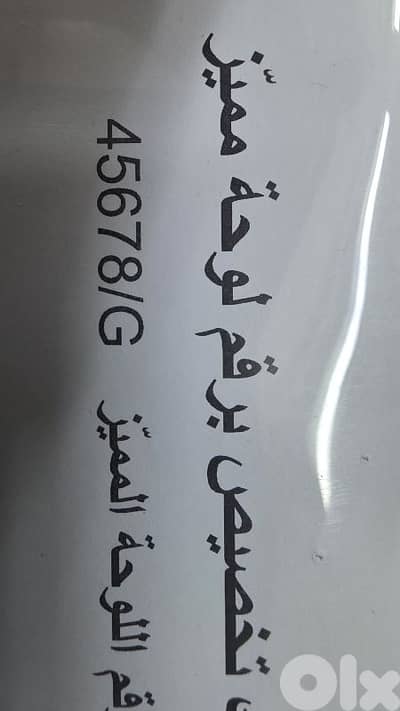 تخصيص برقم لوحة مميّز
رقم اللوحة المميّز 45678/G
OLX